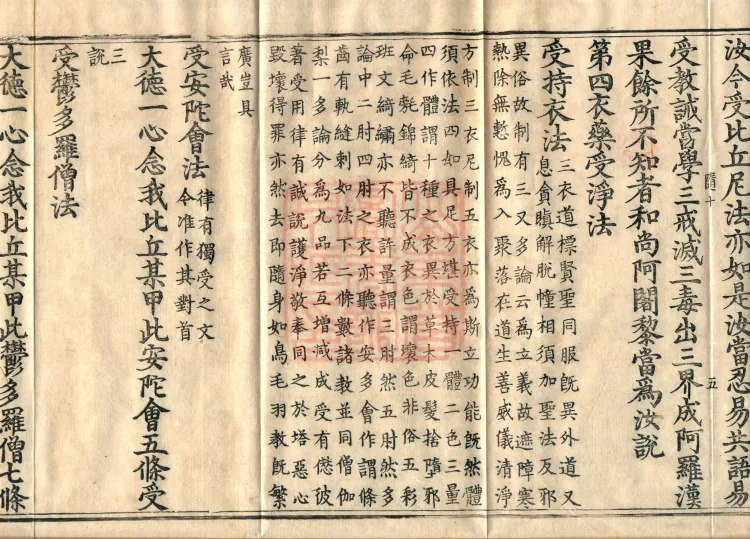 汝今受比丘尼法亦如是汝當忍易共語易
受教誡當學三戒滅三毒出三界成阿羅漢
果餘所不知者和尚阿闍黎當為汝說
第四衣藥受淨法
受持衣法三衣道標賢聖同服既異外道又
息貪瞋解脫幢相須加聖法反邪
異俗故制有三又多論云為立義故遮障寒
熱除無慙愧為入聚落在道生善威儀清淨
方制三衣尼制五衣亦為斯立功能既然體
須依法四如具足方堪受持一體二色三量
四作體謂十種之衣異於草木皮髮捨墮邪
命毛毿錦綺皆不成衣色謂壞色非俗五彩
班文綺繡亦不聽許量謂三肘然五肘然多
論中二肘四肘之衣亦聽作安多會作謂條
齒有軌縫刺如法下二條數諸教並同僧伽
梨一多論分為九品若互增減成受有僁彼
著受用律有誠說護淨敬奉同之於塔惡心
毀壞得罪亦然去即隨身如鳥毛羽教既繁
廣豈具
言哉
受安陀會法律有獨受之文
今准作其對首
大德一心念我比丘某甲此安陀會五條受
三
說
受鬱多羅僧法
大德一心念我比丘某甲此鬱多羅僧七條
隨十
五